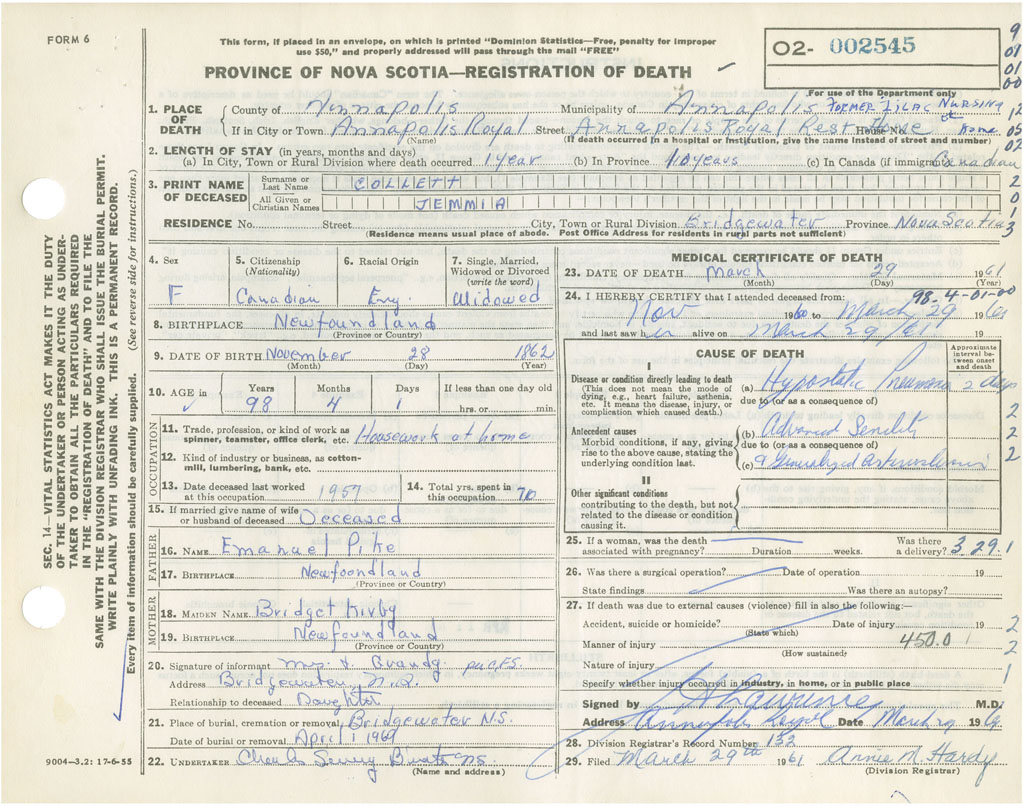 FORM 6
This form, if placed in an envelope, on which is printed "Dominion Statistics—Free, penalty for improper
use $50," and properly addressed will pass through the mail "FREE"
PROVINCE OF NOVA SCOTIA—REGISTRATION OF DEATH
02- 002545
For use of the Department only
9
01
01
00
12
05
02
2
0
1
3
1. PLACE OF DEATH
County of Annapolis Municipality of Annapolis FORMER LILAC NURSING Home
If in City or Town Annapolis Royal Street Annapolis Royal Rest House No.
(Name) (If death occurred in a hospital or institution, give the name instead of street and number)
2. LENGTH OF STAY (in years, months and days)
(a) In City, Town or Rural Division where death occurred 1 year (b) In Province 10 years (c) In Canada (if immigrant) Canadian
3. PRINT NAME OF DECEASED
Surname or Last Name COLLETT
All Given or Christian Names JEMMIA
RESIDENCE No. Street City, Town or Rural Division Bridgewater Province Nova Scotia
(Residence means usual place of abode. Post Office Address for residents in rural parts not sufficient)
SEC. 14—VITAL STATISTICS ACT MAKES IT THE DUTY
OF THE UNDERTAKER OR PERSON ACTING AS UNDER-
TAKER TO OBTAIN ALL THE PARTICULARS REQUIRED
IN THE "REGISTRATION OF DEATH" AND TO FILE THE
SAME WITH THE DIVISION REGISTRAR WHO SHALL ISSUE THE BURIAL PERMIT.
WRITE PLAINLY WITH UNFADING INK. THIS IS A PERMANENT RECORD.
Every item of information should be carefully supplied. (See reverse side for instructions.)
4. Sex F
5. Citizenship (Nationality) Canadian
6. Racial Origin Eng.
7. Single, Married, Widowed or Divorced (write the word) Widowed
8. BIRTHPLACE Newfoundland
(Province or Country)
9. DATE OF BIRTH November 28 1862
(Month) (Day) (Year)
10. AGE in Years Months Days If less than one day old
98 4 1 hrs. or min.
OCCUPATION
11. Trade, profession, or kind of work as spinner, teamster, office clerk, etc. Housework at home
12. Kind of industry or business, as cotton-mill, lumbering, bank, etc.
13. Date deceased last worked at this occupation 1957
14. Total yrs. spent in this occupation 70
15. If married give name of wife or husband of deceased Deceased
FATHER
16. NAME Emanuel Pike
17. BIRTHPLACE Newfoondland
(Province or Country)
MOTHER
18. MAIDEN NAME Bridget Kirby
19. BIRTHPLACE Newfoundland
(Province or Country)
20. Signature of informant Mrs.
Address Bridgewater, N.S.
Relationship to deceased Daughter
21. Place of burial, cremation or removal Bridgewater N.S.
Date of burial or removal April 1 1961
22. UNDERTAKER
(Name and address)
9004—3.2: 17-6-55
MEDICAL CERTIFICATE OF DEATH
23. DATE OF DEATH March 29 1961
(Month) (Day) (Year)
98-4-01-00
24. I HEREBY CERTIFY that I attended deceased from:
Nov 1960 to March 29 1961
and last saw her alive on March 29/61 19
CAUSE OF DEATH
Approximate interval between onset and death
I
Disease or condition directly leading to death
(This does not mean the mode of dying, e.g., heart failure, asthenia, etc. It means the disease, injury, or complication which caused death.)
(a) Hypostatic Pneumonia 2 days
due to (or as a consequence of)
Antecedent causes
Morbid conditions, if any, giving rise to the above cause, stating the underlying condition last.
(b) Advanced Senility
due to (or as a consequence of)
(c) Generalized Arteriosclerosis
II
Other significant conditions
contributing to the death, but not related to the disease or condition causing it.
2
2
2
25. If a woman, was the death associated with pregnancy? Duration weeks. Was there a delivery? 3 29.1
26. Was there a surgical operation? Date of operation 19
State findings Was there an autopsy?
27. If death was due to external causes (violence) fill in also the following:—
Accident, suicide or homicide? Date of injury 19 2
(State which)
Manner of injury 450.0 1 2
(How sustained)
Nature of injury
Specify whether injury occurred in industry, in home, or in public place 1
Signed by M.D.
Address Annapolis Royal Date March 29 1961
28. Division Registrar's Record Number 132
29. Filed March 29th 1961 Annie M. Hardy
(Division Registrar)